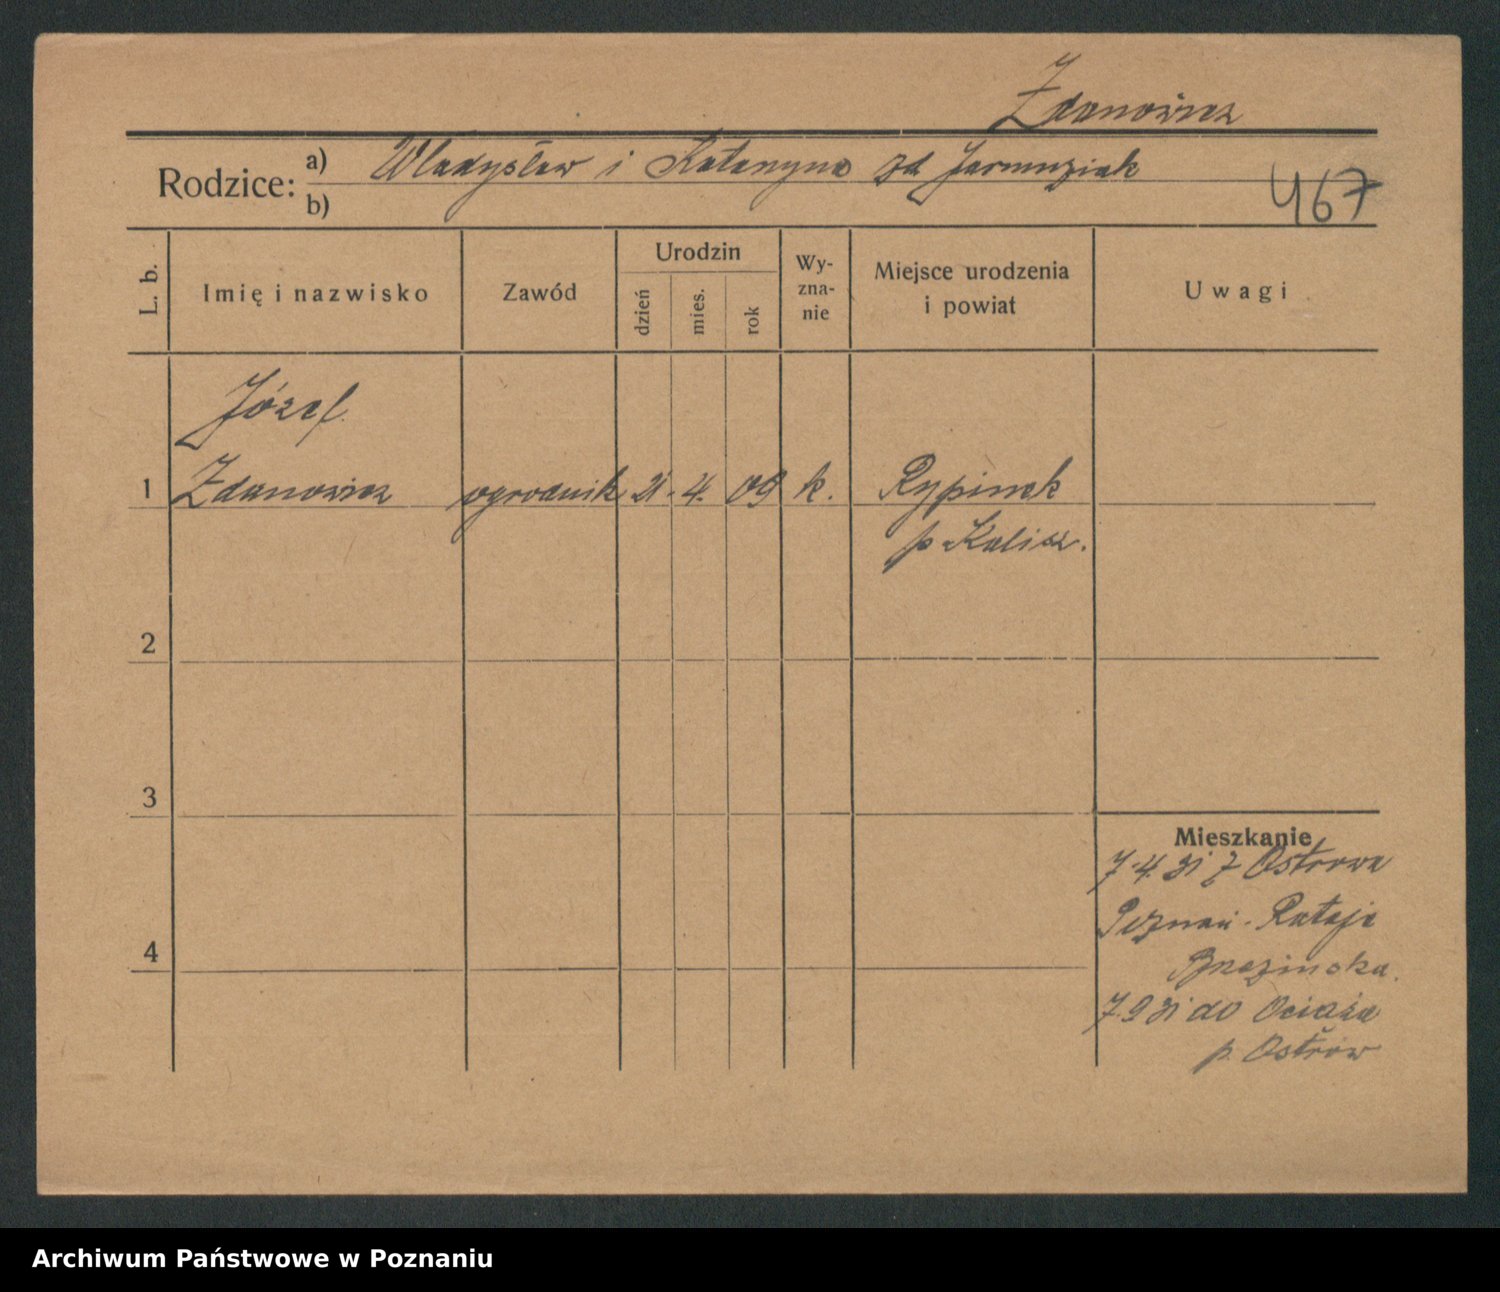 Zdanowicz
Rodzice: a) Władysław i Katarzyna zd Jarmuziak
b)
467
L. b.
Imię i nazwisko
Zawód
Urodzin
dzień
mies.
rok
Wy-
zna-
nie
Miejsce urodzenia
i powiat
Uwagi
Józef
1 Zdanowicz ogrodnik 21. 4. 09 k. Rypinek
p Kalisz.
2
3
4
Mieszkanie
7.4.31 z Ostrowa
Poznań - Rataje
7.9 31 do Ociąża
p. Ostrów
Archiwum Państwowe w Poznaniu